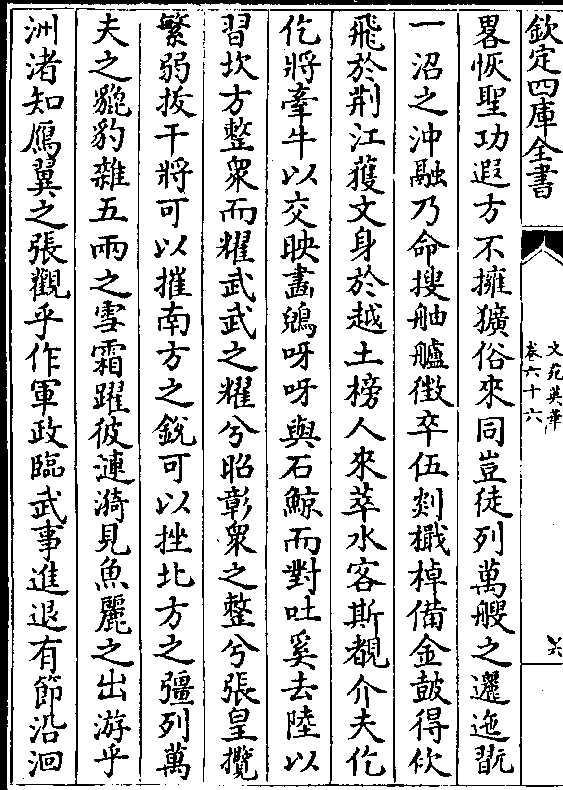 欽定四庫全書
文苑英華
卷六十六
六
畧恢聖功遐方不擁獷俗來同豈徒列萬艘之邐迤翫
一沼之沖融乃命搜舳艫徴卒伍剡檝棹備金鼓得佽
飛於荆江獲文身於越土榜人來萃水客斯覩介夫仡
仡將牽牛以交映畫鷁呀呀與石鯨而對吐奚去陸以
習坎方整衆而耀武武之耀兮昭彰衆之整兮張皇攬
繁弱拔干將可以摧南方之鋭可以挫北方之彊列萬
夫之貔豹雜五兩之雪霜躍彼漣漪見魚麗之出游乎
洲渚知鴈翼之張觀乎作軍政臨武事進退有節沿洄